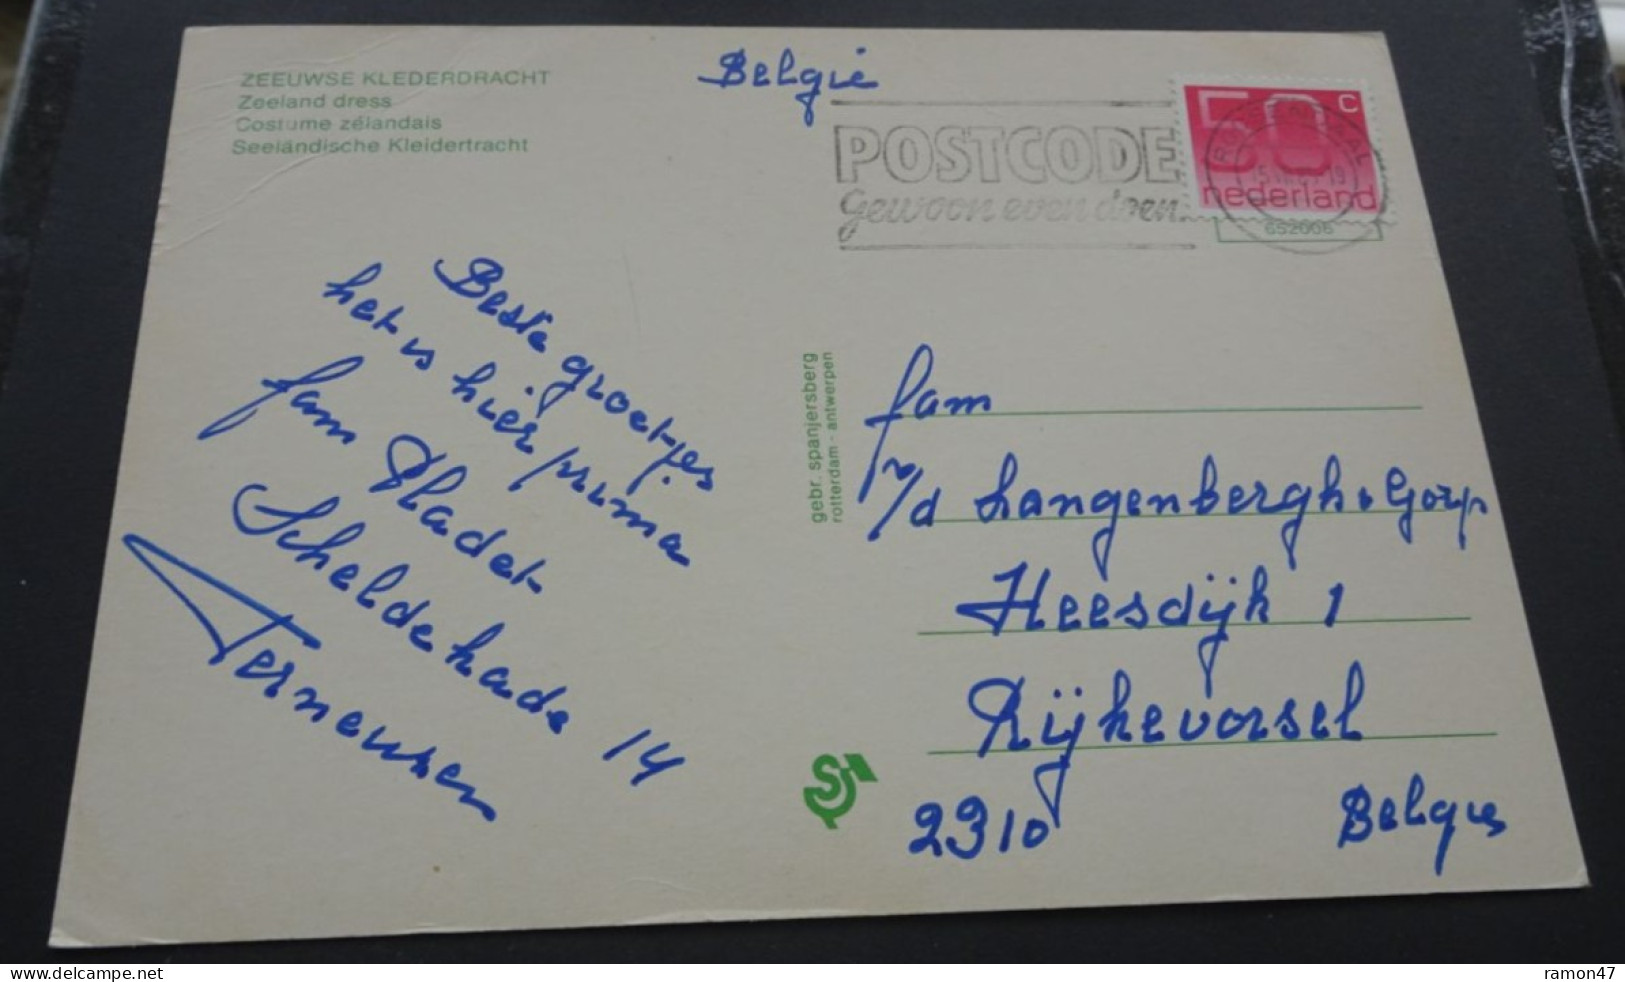 ZEEUWSE KLEDERDRACHT
Zeeland dress
Costume zélandais
Seeländische Kleidertracht
België
POSTCODE
gewoon even doen.
50 c
nederland
652006
Beste groetjes
het is hier prima
fam Pladet
Scheldekade 14
Terneuzen
gebr. spanjersberg
rotterdam - antwerpen
fam
v/d Langenbergh v Gorp
Heesdijk 1
Rijkevorsel
2310 België
www.delcampe.net
ramon47